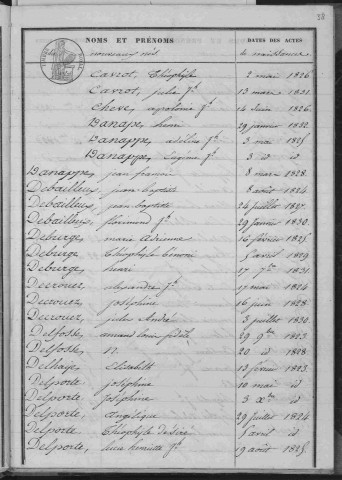 38
NOMS ET PRÉNOMS DATES DES ACTES
nouveaux nés de naissance
Carrot, Théophyle 2 mai 1826
Carrot, julie f.e 13 mars 1831
Cheve, apolonie f.e 14 juin 1826
Danappe, henri 29 janvier 1822
Danappe, adeline f.e 3 mai 1825
Danappe, Eugénie f.e 3 id id
Danappe, jean françois 8 mars 1828
Debailleux, jean baptiste 8 août 1824
Debailleux, jean baptiste 24 juillet 1827
Debailleux, florimond f.e 29 janvier 1830
Deburge, marie adrienne 16 février 1825
Deburge, Théophyle Simon 5 avril 1829
Deburge, henri 17 7bre 1831
Decrouez, alexandre f.e 17 mai 1824
Decrouez, joséphine 16 juin 1828
Decrouez, jules André 3 juillet 1830
Delfosse, amand louis fidèle 29 9bre 1823
Delfosse, n. 20 id 1828
Delhaye, Elisabeth 13 février 1823
Delporte, joséphine 10 mai id
Delporte, joséphine 3 Xbre id
Delporte, angélique 29 juillet 1824
Delporte, Théophyle désiré 5 avril id
Delporte, henriette f.e 19 août 1825